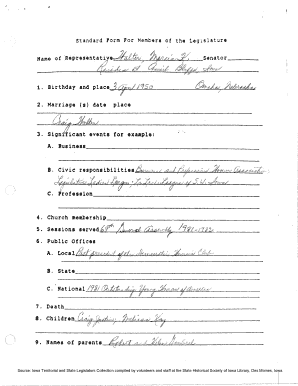 Standard Form For Members of the Legislature
Name of Representative Walter, Marcia K. Senator
Resident of Council Bluffs, Iowa
1. Birthday and place 3 April 1950 Omaha, Nebraska
2. Marriage (s) date place
Craig Walter
3. Significant events for example:
A. Business
B. Civic responsibilities Business and Profession Women Association
Legislative Ladies League; Junior League of S.W. Iowa
C. Profession
4. Church membership
5. Sessions served 69th General Assembly 1981-1982
6. Public Offices
A. Local Past president of the Women's Club
B. State
C. National 1981 Outstanding Young Woman of America
7. Death
8. Children Craig Justin, Melissa Kay
9. Names of parents Robert and Helen
Source: Iowa Territorial and State Legislators Collection compiled by volunteers and staff at the State Historical Society of Iowa Library, Des Moines, Iowa